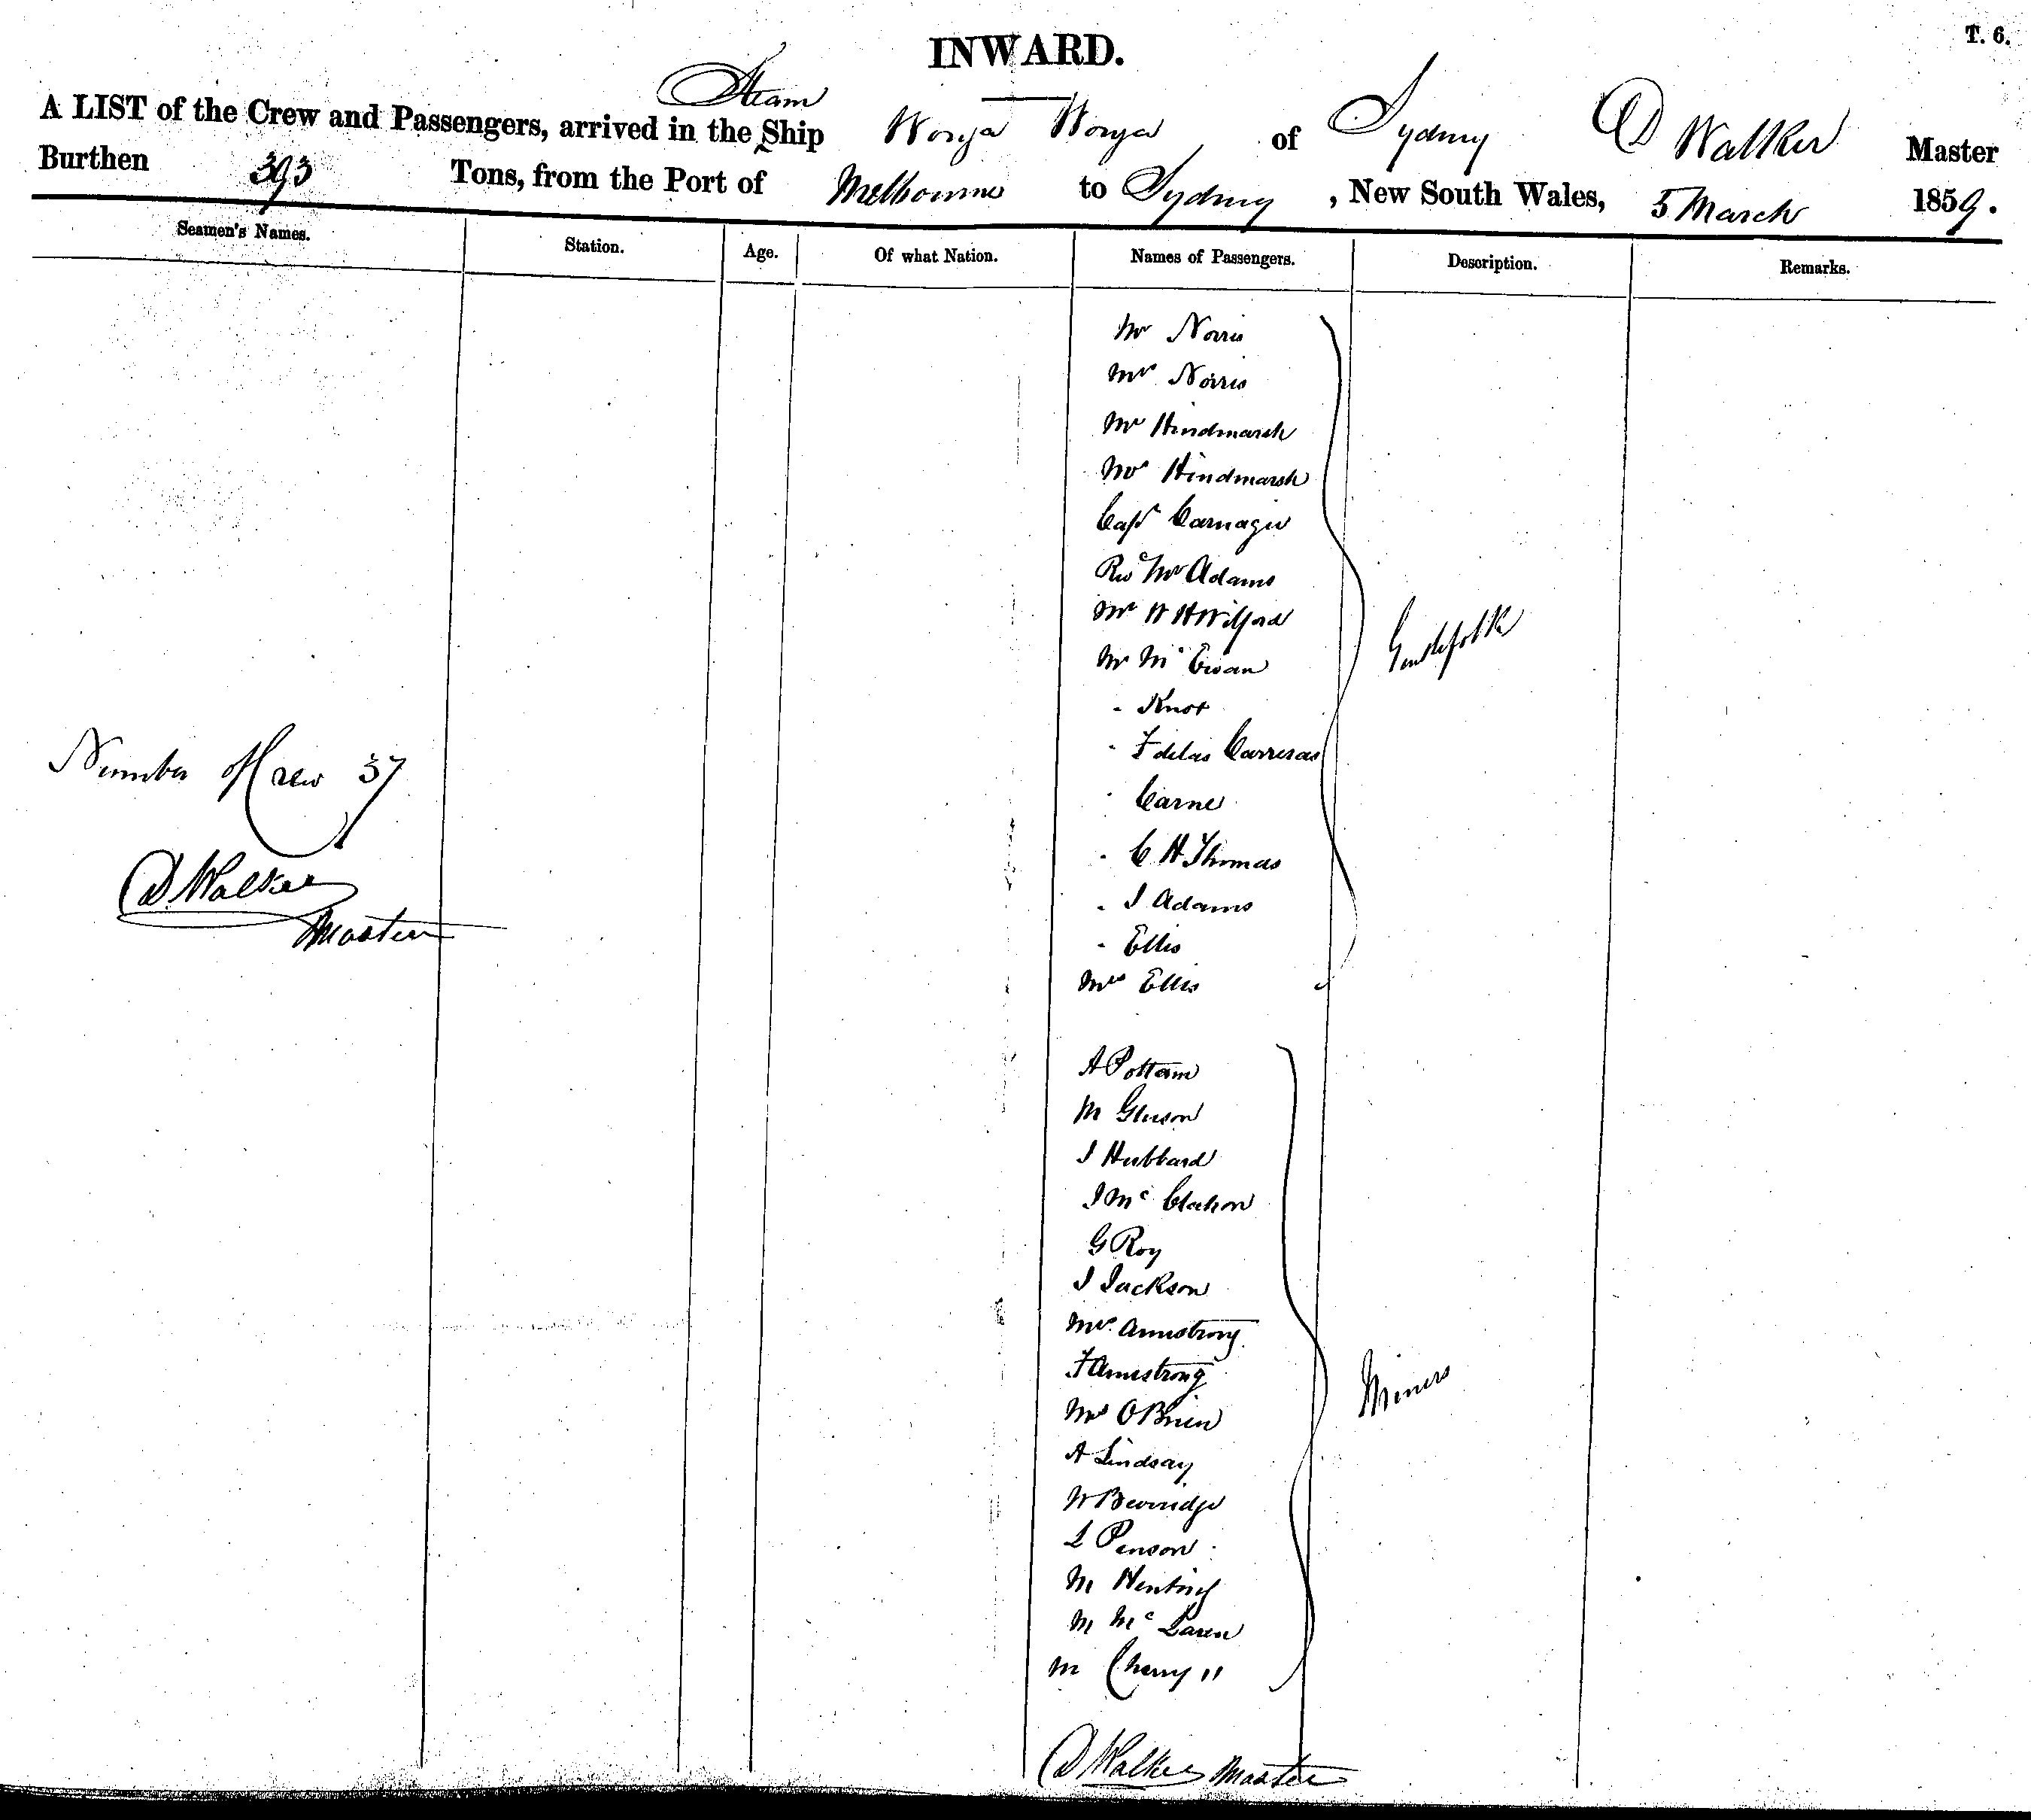 T. 6.
INWARD.
A LIST of the Crew and Passengers, arrived in the Steam Ship Wonga Wonga of Sydney D Walker Master
Burthen 393 Tons, from the Port of Melbourne to Sydney, New South Wales, 5 March 1859.
Seamen's Names. Station. Age. Of what Nation. Names of Passengers. Description. Remarks.
Mr Norris
Mrs Norris
Mr Hindmarsh
Mrs Hindmarsh
Capt Carnagie
Revd Mr Adams
Mr W H Wilford
Mr Mc Ewan
Gentlefolk
" Knot
" F delas Carreras
Number of Crew 37
" Carne
" C H Thomas
D Walker
" J Adams
Master
" Ellis
Mrs Ellis
A Pottam
M Gleeson
J Hubbard
J Mc Clachon
G Roy
J Jackson
Mrs Armstrong
F Armstrong
Miners
Mrs O Brien
A Lindsay
W Beveridge
L Penson
M
M Mc Laren
M Cherry "
D Walker Master